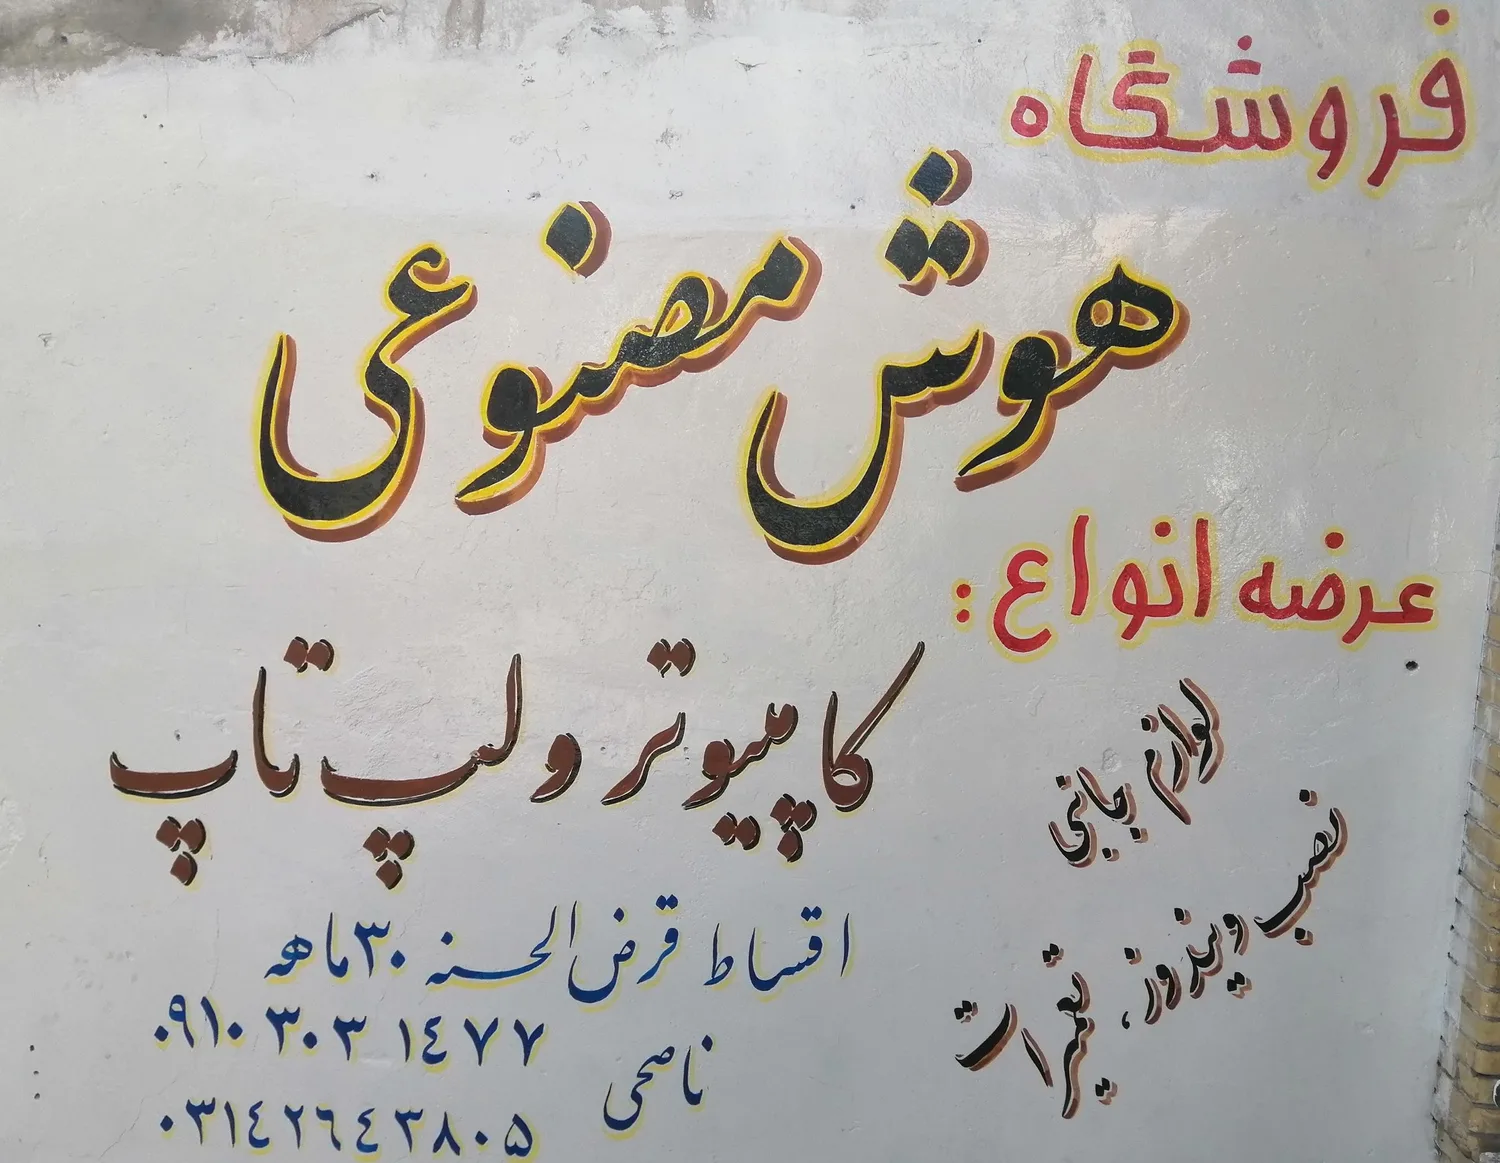 فروشگاه
هوش مصنوعی
عرضه انواع :
کاپیوتر و لپ تاپ
لوازم جانبی
نصب ویندوز، تعمیرات
اقساط قرض الحسنه ۳۰ ماهه
ناصحی
۰۹۱۰ ۳۰۳ ۱۴۷۷
۰۳۱۴۲۶۴۳۸۰۵